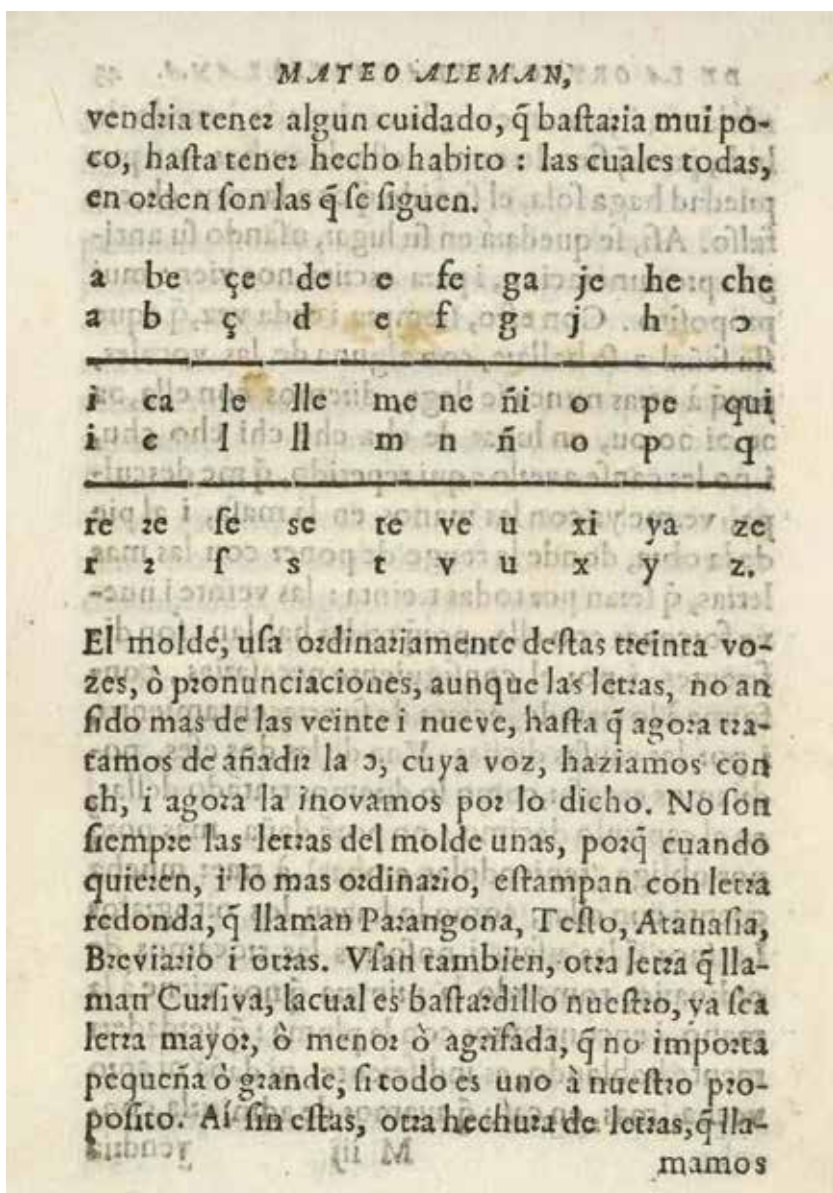 MATEO ALEMAN,
vendꝛia teneꝛ algun cuidado, q̃ baſtaꝛia mui po-
co, haſta teneꝛ hecho habito : las cuales todas,
en oꝛden ſon las q̃ ſe ſiguen.
a be çe de e fe ga je he che
a b ç d e f g j h ɔ
i ca le lle me ne ñi o pe qui
i c l ll m n ñ o p q
re ꝛe ſe se te ve u xi ya ze
r ꝛ ſ s t v u x y z.
El molde, uſa oꝛdinaꝛiamente deſtas tꝛeinta vo-
zes, ò pꝛonunciaciones, aunque las letꝛas, no an
ſido mas de las veinte i nueve, haſta q̃ agoꝛa tꝛa-
tamos de añadiꝛ la ɔ, cuya voz, haziamos con
ch, i agoꝛa la inovamos poꝛ lo dicho. No ſon
ſiempꝛe las letꝛas del molde unas, poꝛq̃ cuando
quieꝛen, i lo mas oꝛdinaꝛio, eſtampan con letꝛa
redonda, q̃ llaman Paꝛangona, Teſto, Atanaſia,
Bꝛeviaꝛio i otꝛas. Vſan tambien, otꝛa letꝛa q̃ lla-
man Cuꝛſiva, lacual es baſtaꝛdillo nueſtꝛo, ya ſea
letꝛa mayoꝛ, ò menoꝛ ò agꝛifada, q̃ no impoꝛta
pequeña ò gꝛande, ſi todo es uno à nueſtꝛo pꝛo-
poſito. Aí ſin eſtas, otꝛa hechuꝛa de letꝛas, q̃ lla-
mamos